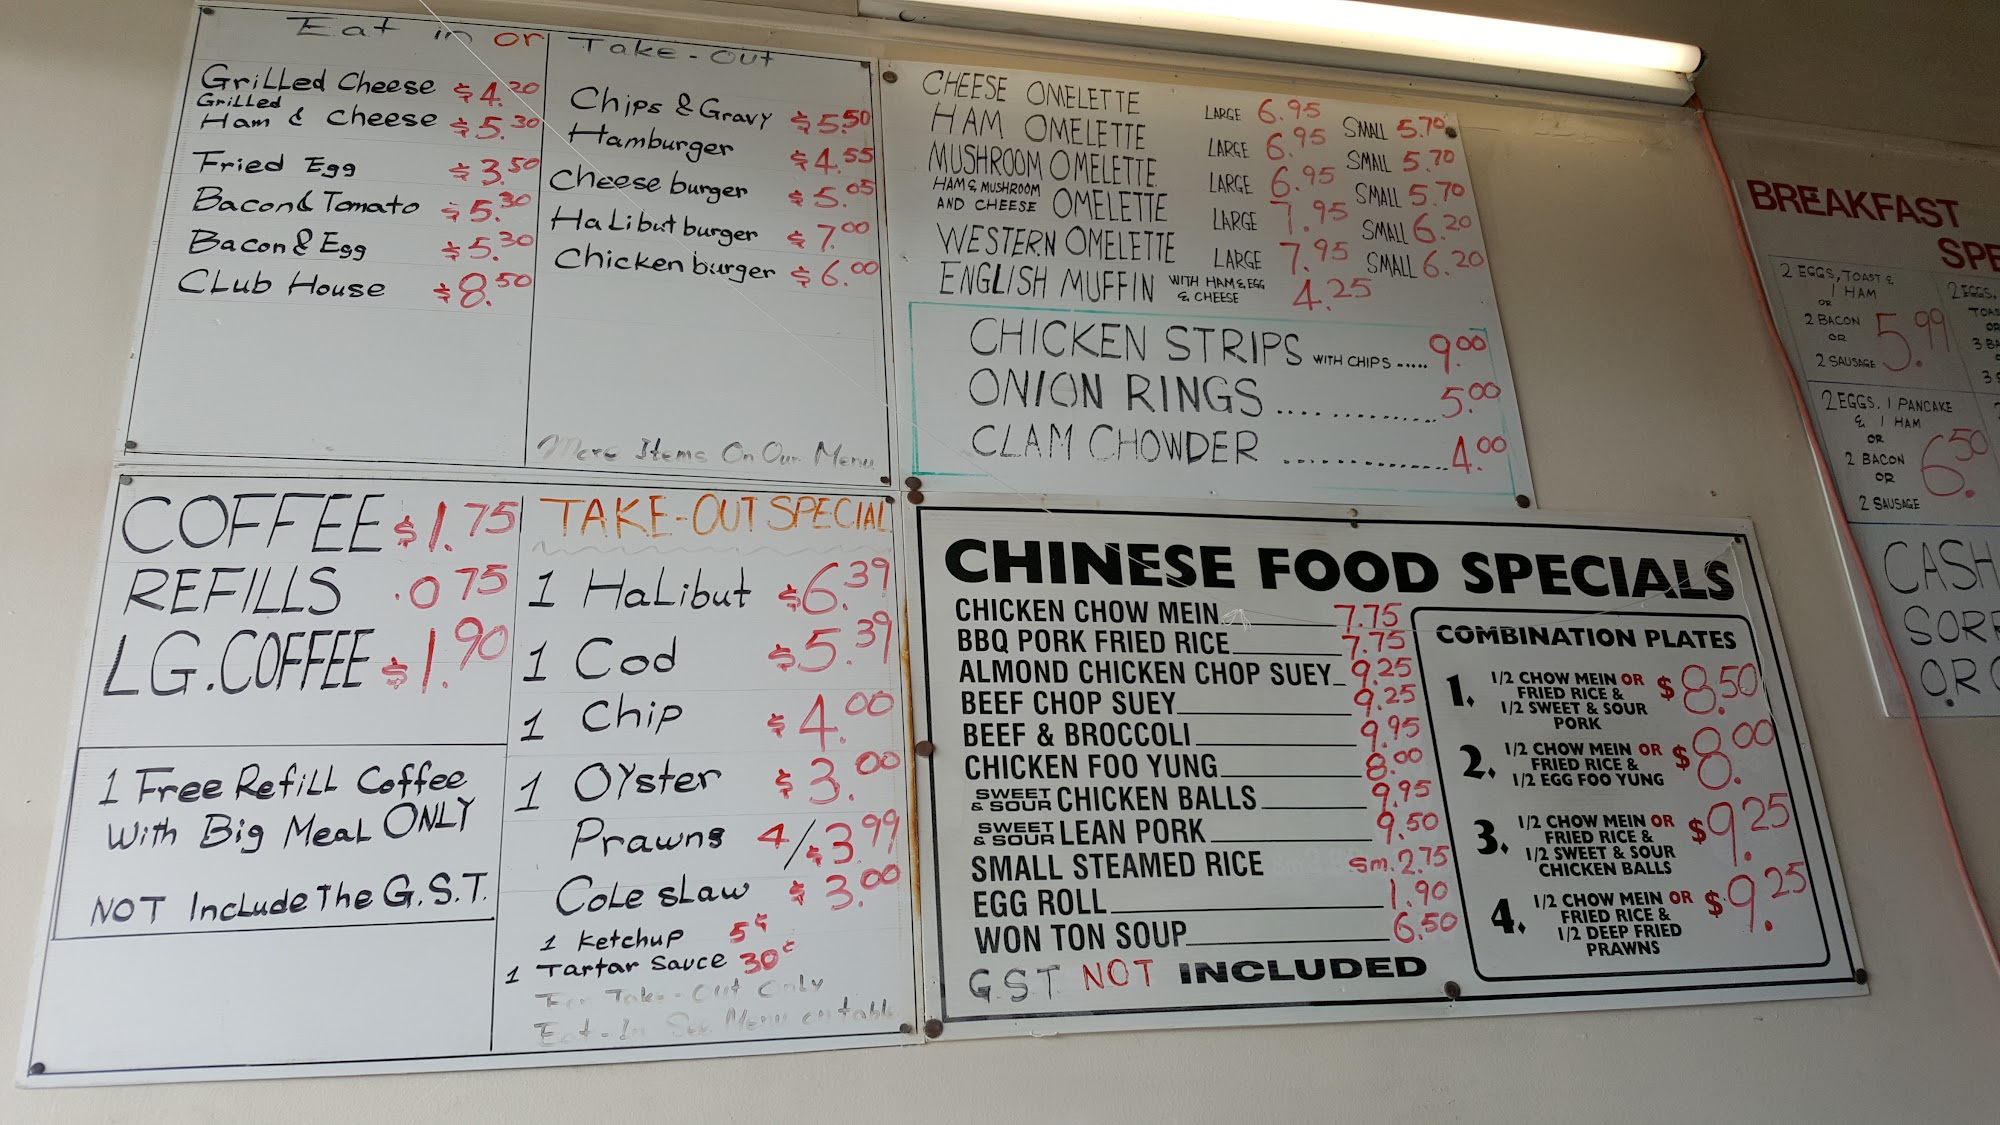 Eat in or Take-Out
Grilled Cheese $4.20
Grilled
Ham & Cheese $5.30
Fried Egg $3.50
Bacon & Tomato $5.30
Bacon & Egg $5.30
Club House $8.50
Chips & Gravy $5.50
Hamburger $4.55
Cheese burger $5.05
Halibut burger $7.00
Chicken burger $6.00
More Items On Our Menu
CHEESE OMELETTE LARGE 6.95 SMALL 5.70
HAM OMELETTE LARGE 6.95 SMALL 5.70
MUSHROOM OMELETTE LARGE 6.95 SMALL 5.70
HAM & MUSHROOM
AND CHEESE OMELETTE LARGE 7.95 SMALL 6.20
WESTERN OMELETTE LARGE 7.95 SMALL 6.20
ENGLISH MUFFIN WITH HAM & EGG
& CHEESE 4.25
CHICKEN STRIPS WITH CHIPS ..... 9.00
ONION RINGS ............. 5.00
CLAM CHOWDER ............. 4.00
COFFEE $1.75
REFILLS .075
LG. COFFEE $1.90
1 Free Refill Coffee
With Big Meal ONLY
NOT Include The G.S.T.
TAKE-OUT SPECIAL
1 Halibut $6.39
1 Cod $5.39
1 Chip $4.00
1 Oyster $3.00
Prawns 4/$3.99
Cole slaw $3.00
1 Ketchup 5¢
1 Tartar Sauce 30¢
For Take-Out Only
Eat-In See Menu on table
CHINESE FOOD SPECIALS
CHICKEN CHOW MEIN 7.75
BBQ PORK FRIED RICE 7.75
ALMOND CHICKEN CHOP SUEY 9.25
BEEF CHOP SUEY 9.25
BEEF & BROCCOLI 9.95
CHICKEN FOO YUNG 8.00
SWEET & SOUR CHICKEN BALLS 9.95
SWEET & SOUR LEAN PORK 9.50
SMALL STEAMED RICE sm. 2.75
EGG ROLL 1.90
WON TON SOUP 6.50
G.S.T. NOT INCLUDED
COMBINATION PLATES
1. 1/2 CHOW MEIN OR
FRIED RICE &
1/2 SWEET & SOUR
PORK $8.50
2. 1/2 CHOW MEIN OR
FRIED RICE &
1/2 EGG FOO YUNG $8.00
3. 1/2 CHOW MEIN OR
FRIED RICE &
1/2 SWEET & SOUR
CHICKEN BALLS $9.25
4. 1/2 CHOW MEIN OR
FRIED RICE &
1/2 DEEP FRIED
PRAWNS $9.25
BREAKFAST
SPE
2 EGGS, TOAST &
1 HAM
OR
2 BACON
OR
2 SAUSAGE 5.99
2 EGGS,
TOA
OR
3 B
3 S
2 EGGS, 1 PANCAKE
& 1 HAM
OR
2 BACON
OR
2 SAUSAGE 6.50
CASH
SOR
OR